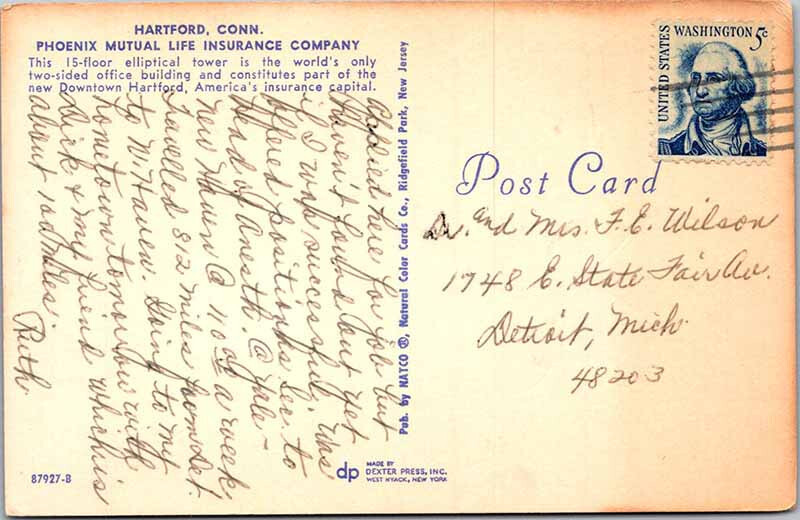 HARTFORD, CONN.
PHOENIX MUTUAL LIFE INSURANCE COMPANY
This 15-floor elliptical tower is the world's only
two-sided office building and constitutes part of the
new Downtown Hartford, America's insurance capital.
Applied here for job but
haven't found out yet
if I was successful. Was
offered position as Sec. to
Head of Anesth. @ Yale -
New Haven @ 110.00 a week
Travelled 812 miles from Det.
to N. Haven. Going to my
hometown tomorrow with
Dick & my friend which is
about 100 miles.
Ruth
Pub. by NATCO ®, Natural Color Cards Co., Ridgefield Park, New Jersey
87927-B
dp
MADE BY
DEXTER PRESS, INC.
WEST NYACK, NEW YORK
UNITED STATES
WASHINGTON 5c
Post Card
Dr. and Mrs. F. E. Wilson
1748 E. State Fair Av.
Detroit, Mich.
48203